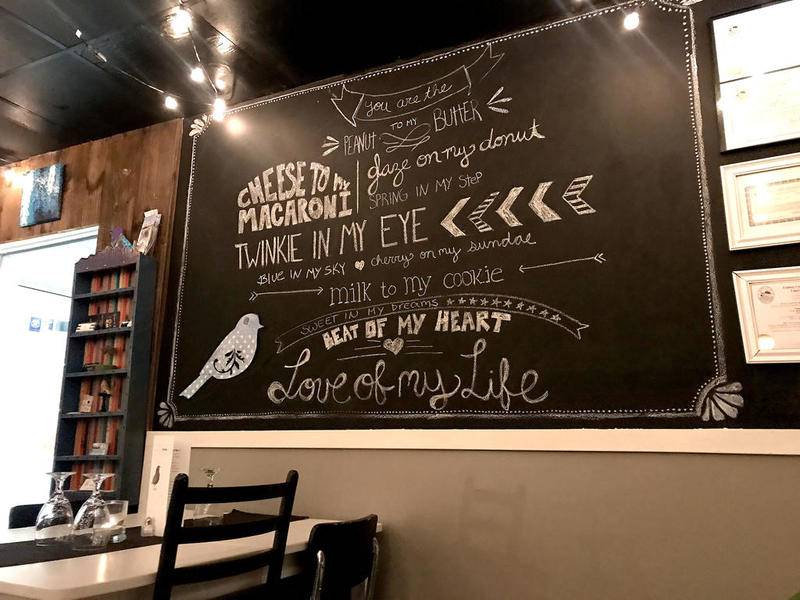 you are the
PEANUT TO MY BUTTER
CHEESE TO MY
MACARONI
glaze on my donut
SPRING IN MY STEP
TWINKIE IN MY EYE
BLUE IN MY SKY cherry on my sundae
milk to my cookie
SWEET IN MY DREAMS
BEAT OF MY HEART
Love of my Life